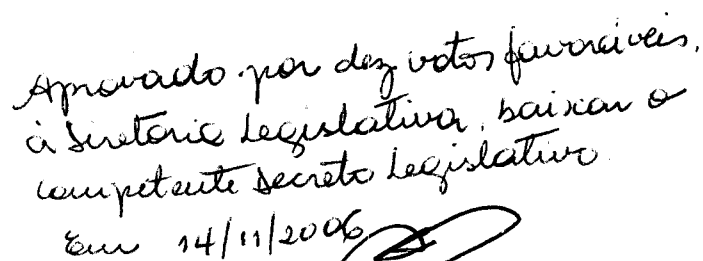 Aprovado por dez votos favoráveis,
à Diretoria Legislativa, baixar o
competente Decreto Legislativo
Em 14/11/2006